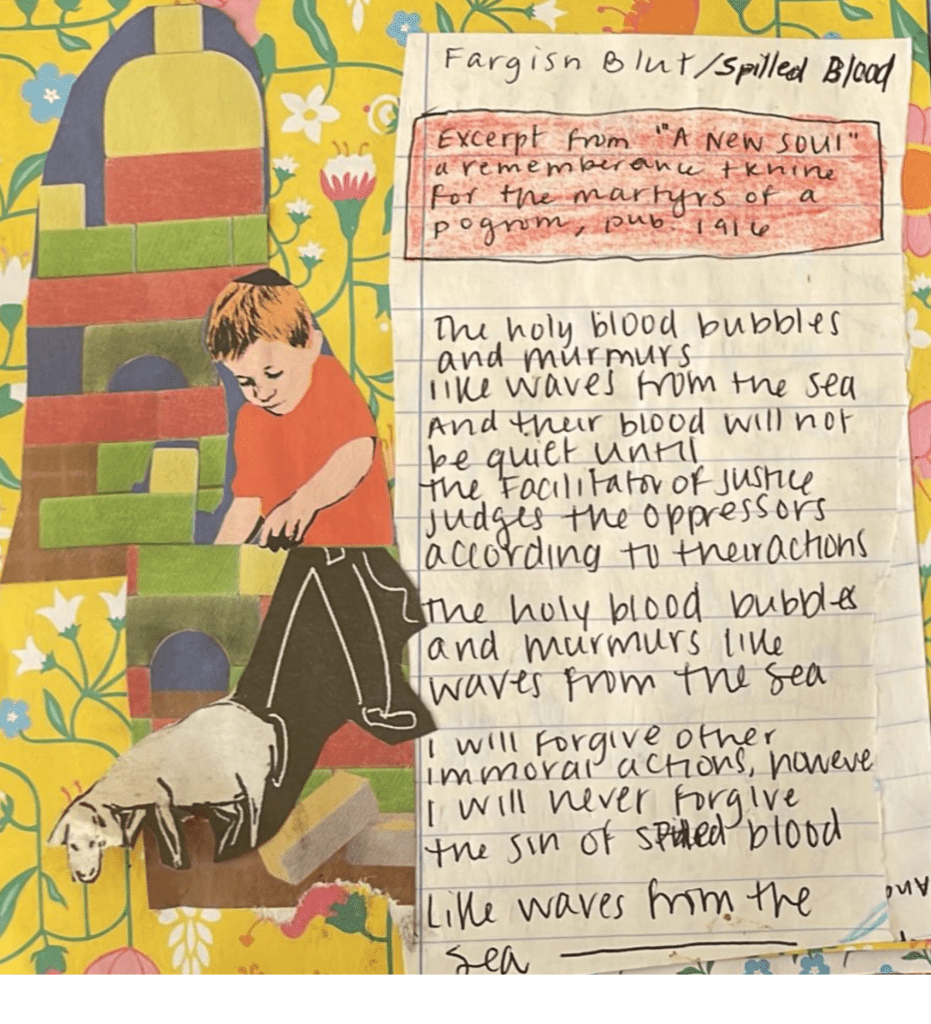 Fargisn Blut/Spilled Blood
Excerpt from "A New Soul"
a rememberance tkhine
for the martyrs of a
pogrom, pub. 1916
The holy blood bubbles
and murmurs
like waves from the sea
And their blood will not
be quiet until
the Facilitator of justice
judges the oppressors
according to their actions
The holy blood bubbles
and murmurs like
waves from the sea
I will forgive other
immoral actions, howeve
I will never forgive
the sin of spilled blood
Like waves from the
sea